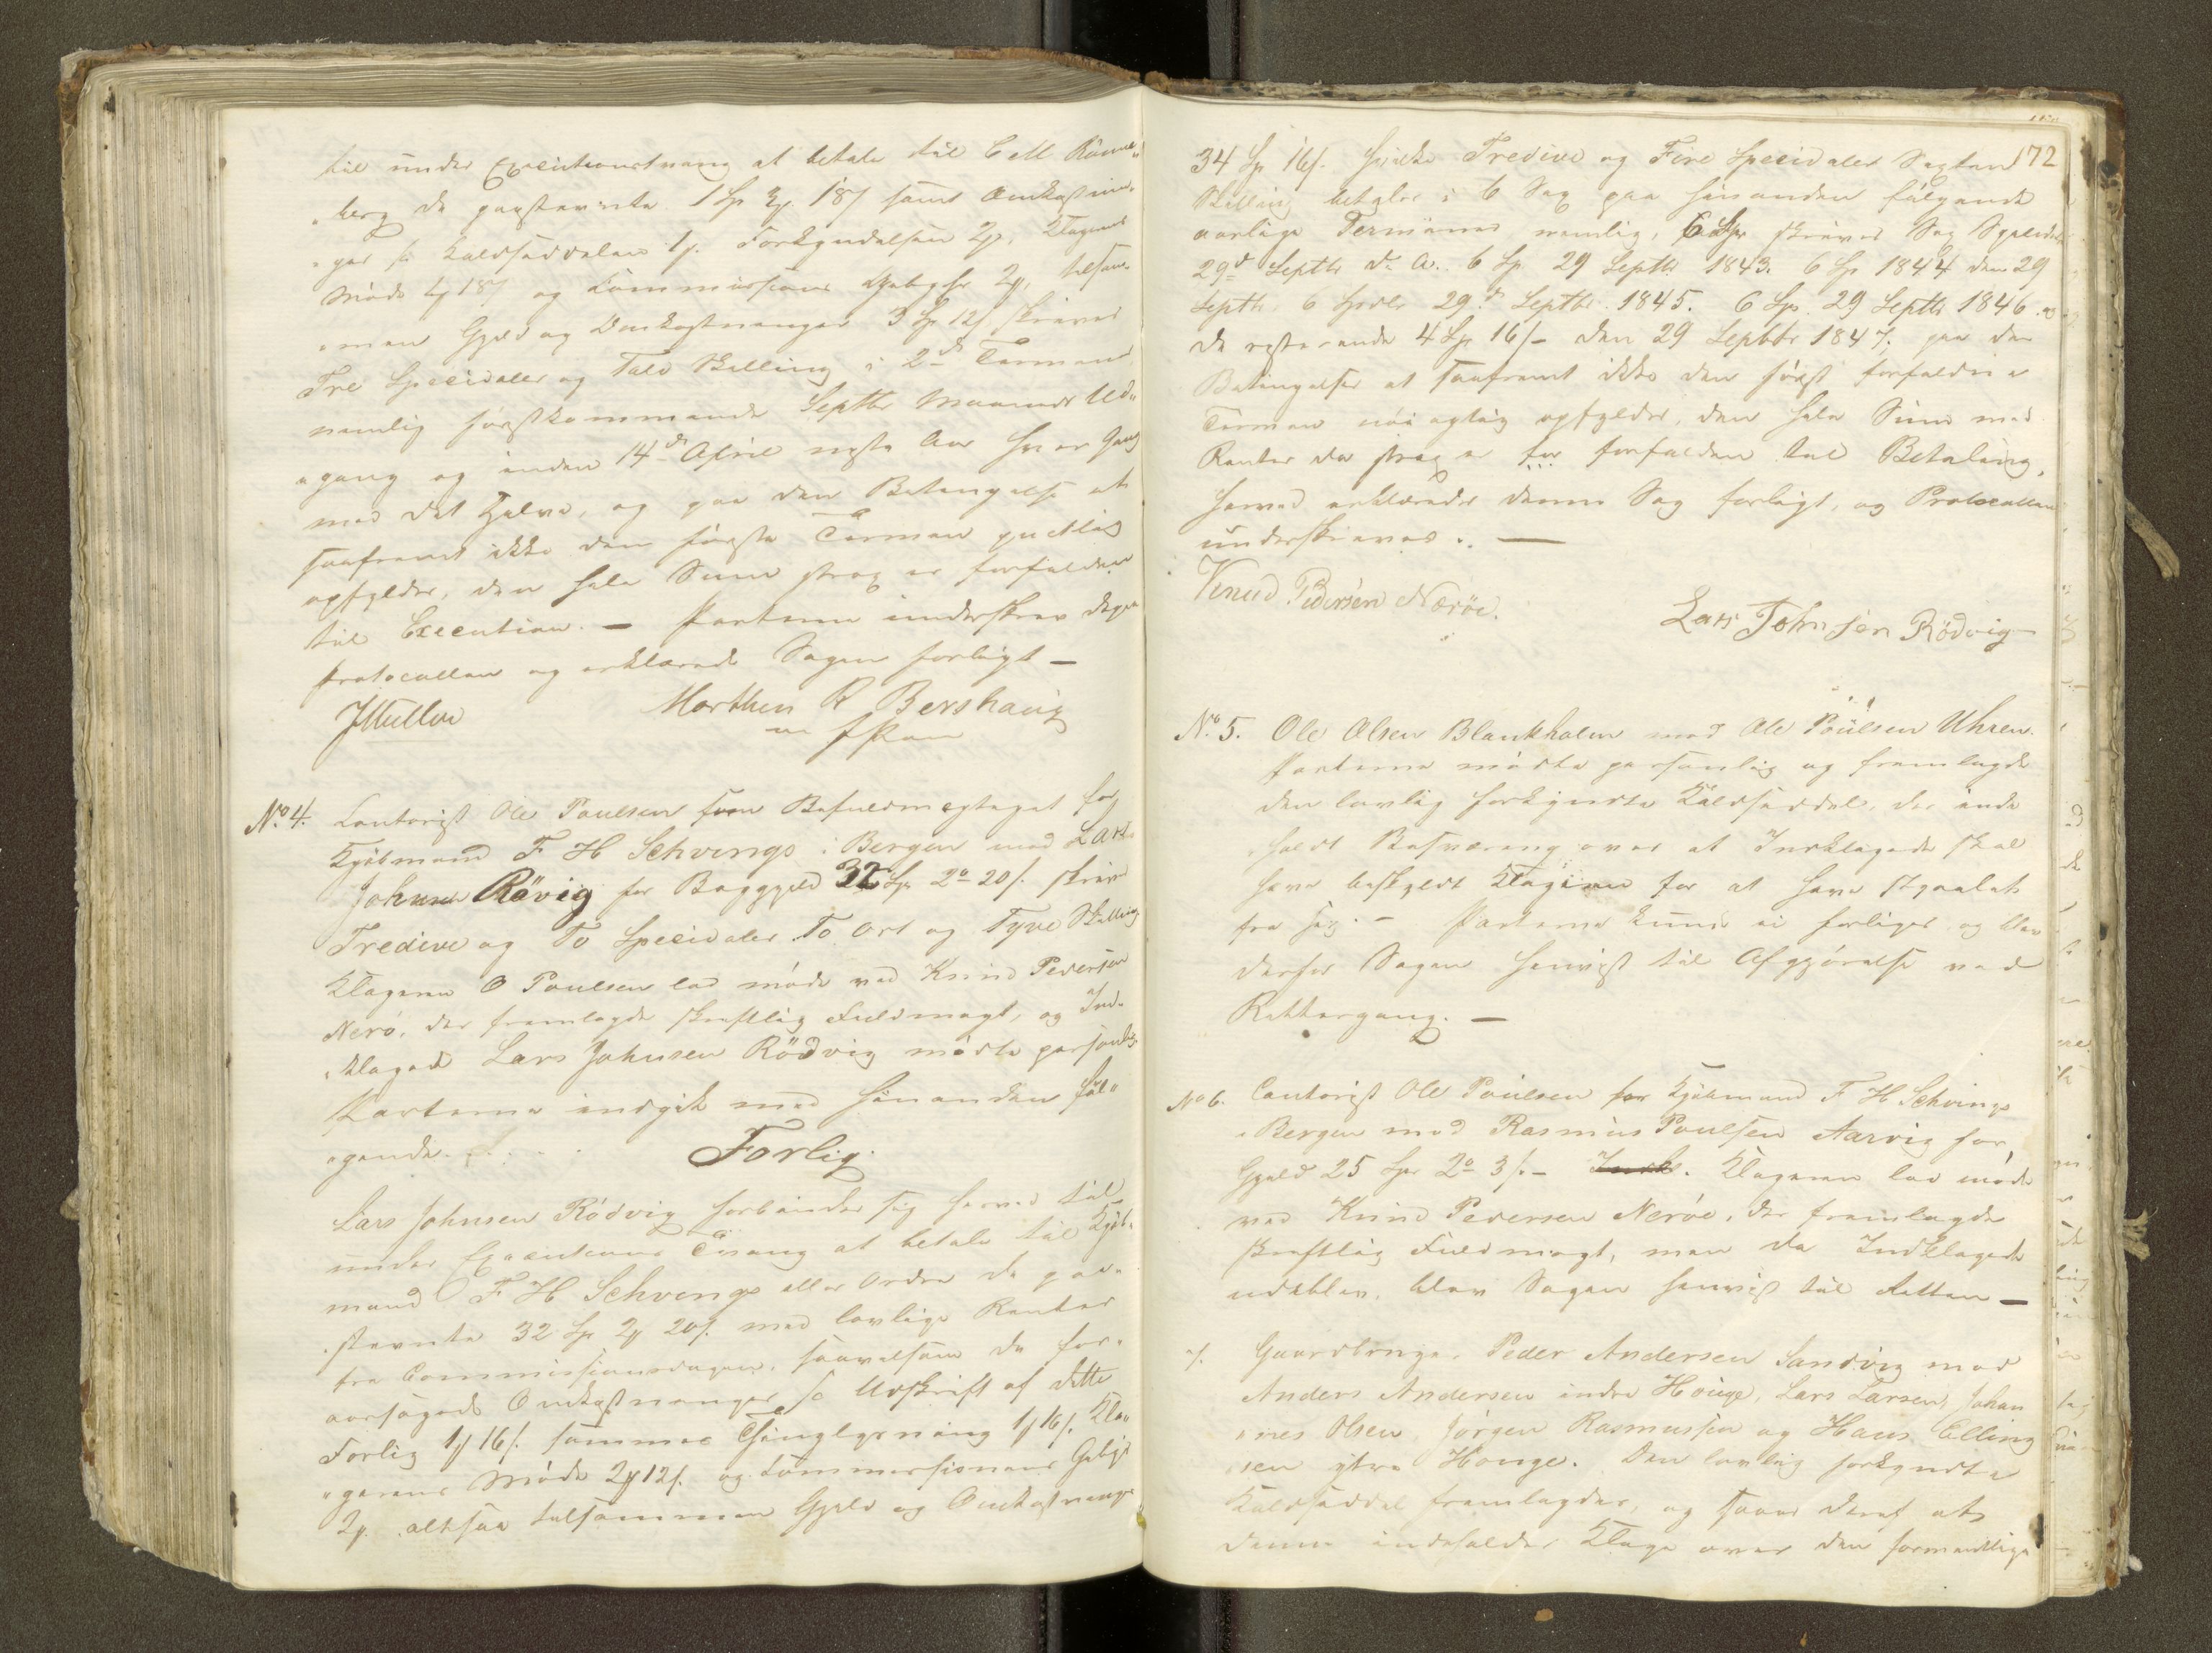 til under Executionstvang at betale til C M Rönne„
„berg de paastævnte 1 Sp 3 18 samt Omkostnin„
„ger for Kaldsædelen 1 Forkyndelsen 2, Klagerens
Møde 4 18 og Commissions Gebyhr 2, tilsam„
„men Gjeld og Omkostninger 3 Sp 12 skriver
Tre Speciedaler og Tolv Skilling i 2de Terminer
nemlig förstkommende Septbr Maaneds Ud„
„gang og inden 14de April næste Aar hver Gang
med det Halve, og paa den Betingelse at
saafremt ikke den første Termin punctlig
opfyldes, den hele Sum strax er forfalden
til Execution. — Parterne underskrev derpaa
Protocollen og erklærede Sagen forligt —
JMuller Morthen R Bershaug
No. 4. Cantorist Ole Poulsen som Befuldmegtiget for
Kjøbmand F H Schvings i Bergen mod Lars
Johnsen Rövig for Boggjeld 32 Sp 2 o 20 s. skriver
Tredive og To Speciedaler To Ort og Tyve Skilling
Klageren O Poulsen lod møde ved Knud Pedersen
Nerö, der fremlagde skriftlig Fuldmagt, og Ind„
„klagede Lars Johnsen Rödvig mødte personlig
Parterne indgik med hinanden føl„
„gende Forlig.
Lars Johnsen Rödvig forbinder sig herved til
under Executions Tvang at betale til Kjøb„
mand F H Schvings eller Ordre de paa„
„stævnte 32 Sp 2 20 s. med lovlige Renter
fra Commissionsdagen, saavelsom de for„
aarsagede Omkostninger for Udskrift af dette
Forlig 1 16 s. sammes Thinglysning 1 16 s. Kla„
„gerens Møde 2 12 s. og Commissionens Gebyr
2. altsaa tilsammen Gjeld og Omkostninger
172
34 Sp 16 s. hvilke Tredive og Fire Speciedaler Sexten
Skilling betales i 6 Sex paa hinanden følgende
aarlige Terminer nemlig, 6 Spr skriver Sex Speciedr
29d Septbr d. A. 6 Sp 29 Septbr 1843. 6 Sp 1844 den 29
Septbr. 6 Spdlr 29d Septbr. 1845. 6 Sp. 29 Septbr 1846. og
de resterende 4 Sp 16 s — den 29 Septbr 1847. paa den
Betingelse at saafremt ikke den først forfaldne
Termin nøiagtig opfyldes, den hele Sum med
Renter da strax er for forfalden til Betaling,
herved erklæredes denne Sag forligt, og Protocollen
underskreves. —
Knud Pedersen Nerøe. Lars Johnsen Rödvig
No. 5. Ole Olsen Blankholm mod Ole Poulsen Uhren.
Parterne mødte personlig og fremlagde
den lovlig forkyndte Kaldsæddel, der inde
„holdt Besværing over at Indklagede skal
have beskyldt Klageren for at have stjaalet
fra sig. — Parterne kunde ei forliges og blev
derfor Sagen henvist til Afgjørelse ved
Rettergang. —
No 6. Cantorist Ole Poulsen for Kjøbmand F H Schvings
i Bergen mod Rasmus Poulsen Aarvig for
Gjeld 25 Spr 2 o 3 s. — Klageren lod møde
ved Knud Pedersen Nerøe, der fremlagde
skriftlig Fuldmagt, men da Indklagede
udeblev, blev Sagen henvist til Retten —
7. Gaardbruger Peder Andersen Sandvig mod
Anders Andersen indre Houge, Lars Larsen, Johan
„nes Olsen, Jørgen Rasmussen og Hans Elling
sen ytre Houge. Den lovlig forkyndte
Kaldsæddel fremlagdes, og saaes deraf at
denne indeholder Klage over den formentlige